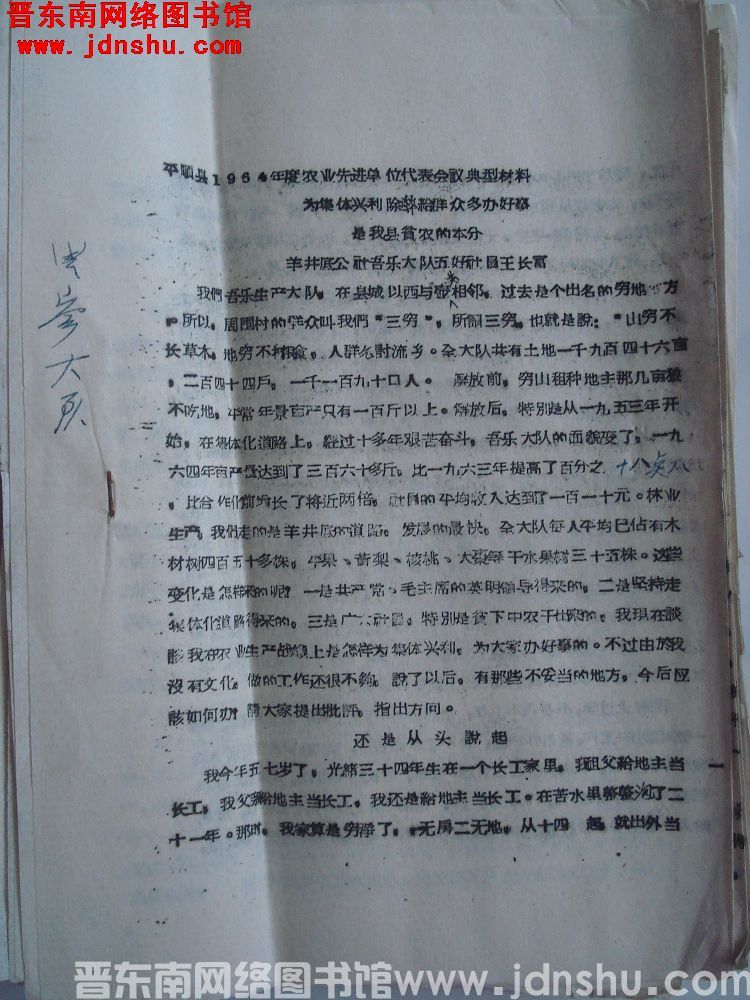 晋东南网络图书馆
www.jdnshu.com
平順县1964年度农业先进单位代表会議典型材料
为集体兴利除弊給群众多办好事
是我县貧农的本分
羊井底公社吾乐大队五好社員王长富
我們吾乐生产大队，在县城以西与壶关相邻，过去是个出名的穷地方
。所以，周围村的群众叫我們“三穷”，所謂三穷，也就是說：“山穷不
长草木，地穷不打粮食，人群幺討流乡。全大队共有土地一千九百四十六亩
，二百四十四戶，一千一百九十口人。解放前，穷山租种地主那几亩狼
不吃地，平常年景亩产只有一百斤以上。解放后，特别是从一九五三年开
始，在集体化道路上，經过十多年艰苦奋斗，吾乐大队的面貌变了，一九
六四年亩产量达到了三百六十多斤，比一九六三年提高了百分之十八点八
，比合作化前增长了将近两倍，社員的平均收入达到了一百一十元。林业
生产，我們走的是羊井底的道路，发展的最快，全大队每人平均已佔有木
材树四百五十多株，苹果、黄梨、核桃、大棗等干水果树三十五株。这些
变化是怎样来的呢？一是共产党、毛主席的英明领导得来的，二是坚持走
集体化道路得来的，三是广大社員，特别是貧下中农干出来的。我現在談
談我在农业生产战線上是怎样为集体兴利，为大家办好事的。不过由於我
沒有文化，做的工作还很不夠，說了以后，有那些不妥当的地方，今后应
該如何办，請大家提出批評，指出方向。
还是从头說起
我今年五七岁了，光緒三十四年生在一个长工家里，我祖父給地主当
长工，我父亲給地主当长工，我还是給地主当长工。在苦水里整整泡了二
十一年。那时，我家算是穷淨了，一无房二无地，从十四起就出外当
大队
晋东南网络图书馆www.jdnshu.com